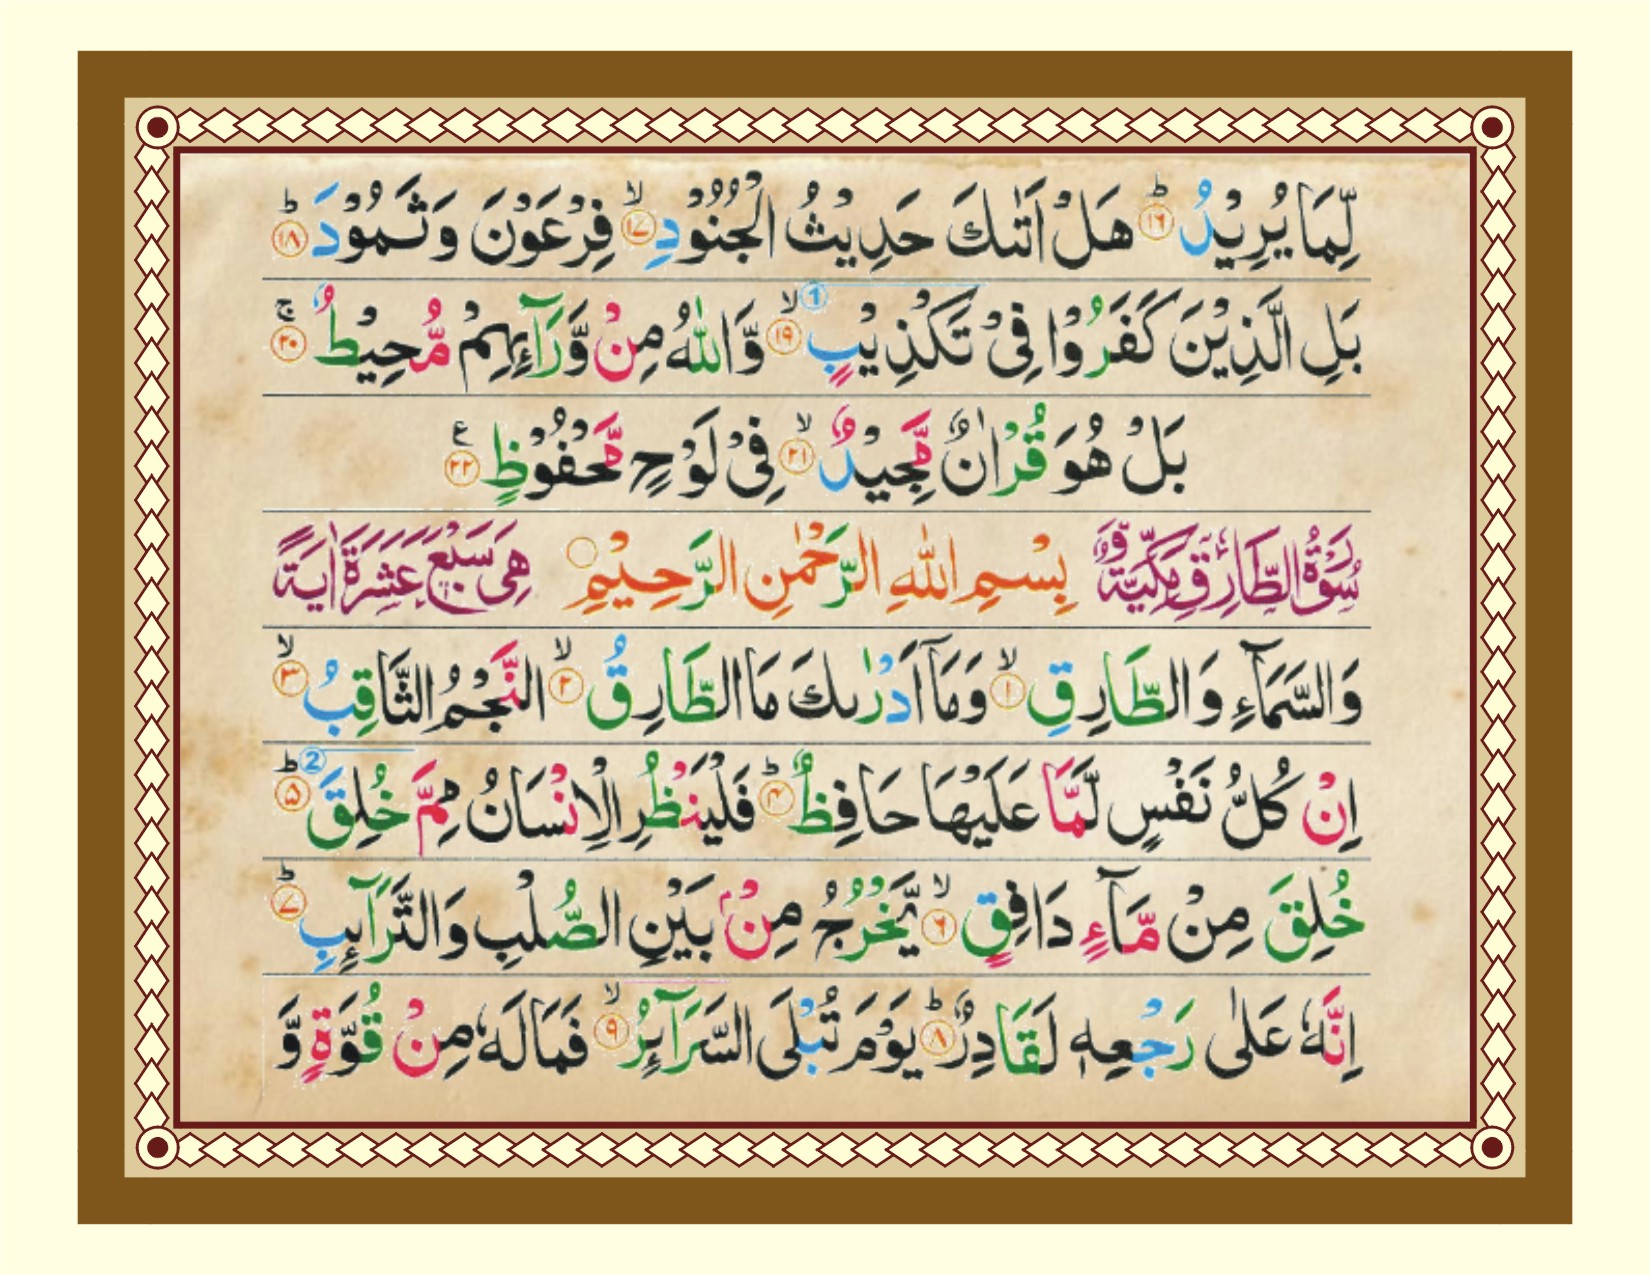 لِّمَا يُرِيْدُ ؕ ﴿۱۶﴾ هَلْ اَتٰىكَ حَدِيْثُ الْجُنُوْدِ ۙ ﴿۱۷﴾ فِرْعَوْنَ وَثَمُوْدَ ؕ ﴿۱۸﴾
بَلِ الَّذِيْنَ كَفَرُوْا فِىْ تَكْذِيْبٍ ۙ 1 ﴿۱۹﴾ وَّاللّٰهُ مِنْ وَّرَآئِهِمْ مُّحِيْطٌ ۚ ﴿۲۰﴾
بَلْ هُوَ قُرْاٰنٌ مَّجِيْدٌ ۙ ﴿۲۱﴾ فِىْ لَوْحٍ مَّحْفُوْظٍ ع ﴿۲۲﴾
سُوْرَةُ الطَّارِقِ مَكِّيَّةٌ وَّ بِسْمِ اللّٰهِ الرَّحْمٰنِ الرَّحِيْمِ هِىَ سَبْعَ عَشَرَةَ اٰيَةً
وَالسَّمَآءِ وَالطَّارِقِ ۙ ﴿۱﴾ وَمَآ اَدْرٰىكَ مَا الطَّارِقُ ۙ ﴿۲﴾ النَّجْمُ الثَّاقِبُ ۙ ﴿۳﴾
اِنْ كُلُّ نَفْسٍ لَّمَّا عَلَيْهَا حَافِظٌ ؕ ﴿۴﴾ فَلْيَنْظُرِ الْاِنْسَانُ مِمَّ خُلِقَ ؕ 2 ﴿۵﴾
خُلِقَ مِنْ مَّآءٍ دَافِقٍ ۙ ﴿۶﴾ يَّخْرُجُ مِنْۢ بَيْنِ الصُّلْبِ وَالتَّرَآئِبِ ؕ ﴿۷﴾
اِنَّهٗ عَلٰى رَجْعِهٖ لَقَادِرٌ ؕ ﴿۸﴾ يَوْمَ تُبْلَى السَّرَآئِرُ ۙ ﴿۹﴾ فَمَا لَهٗ مِنْ قُوَّةٍ وَّ